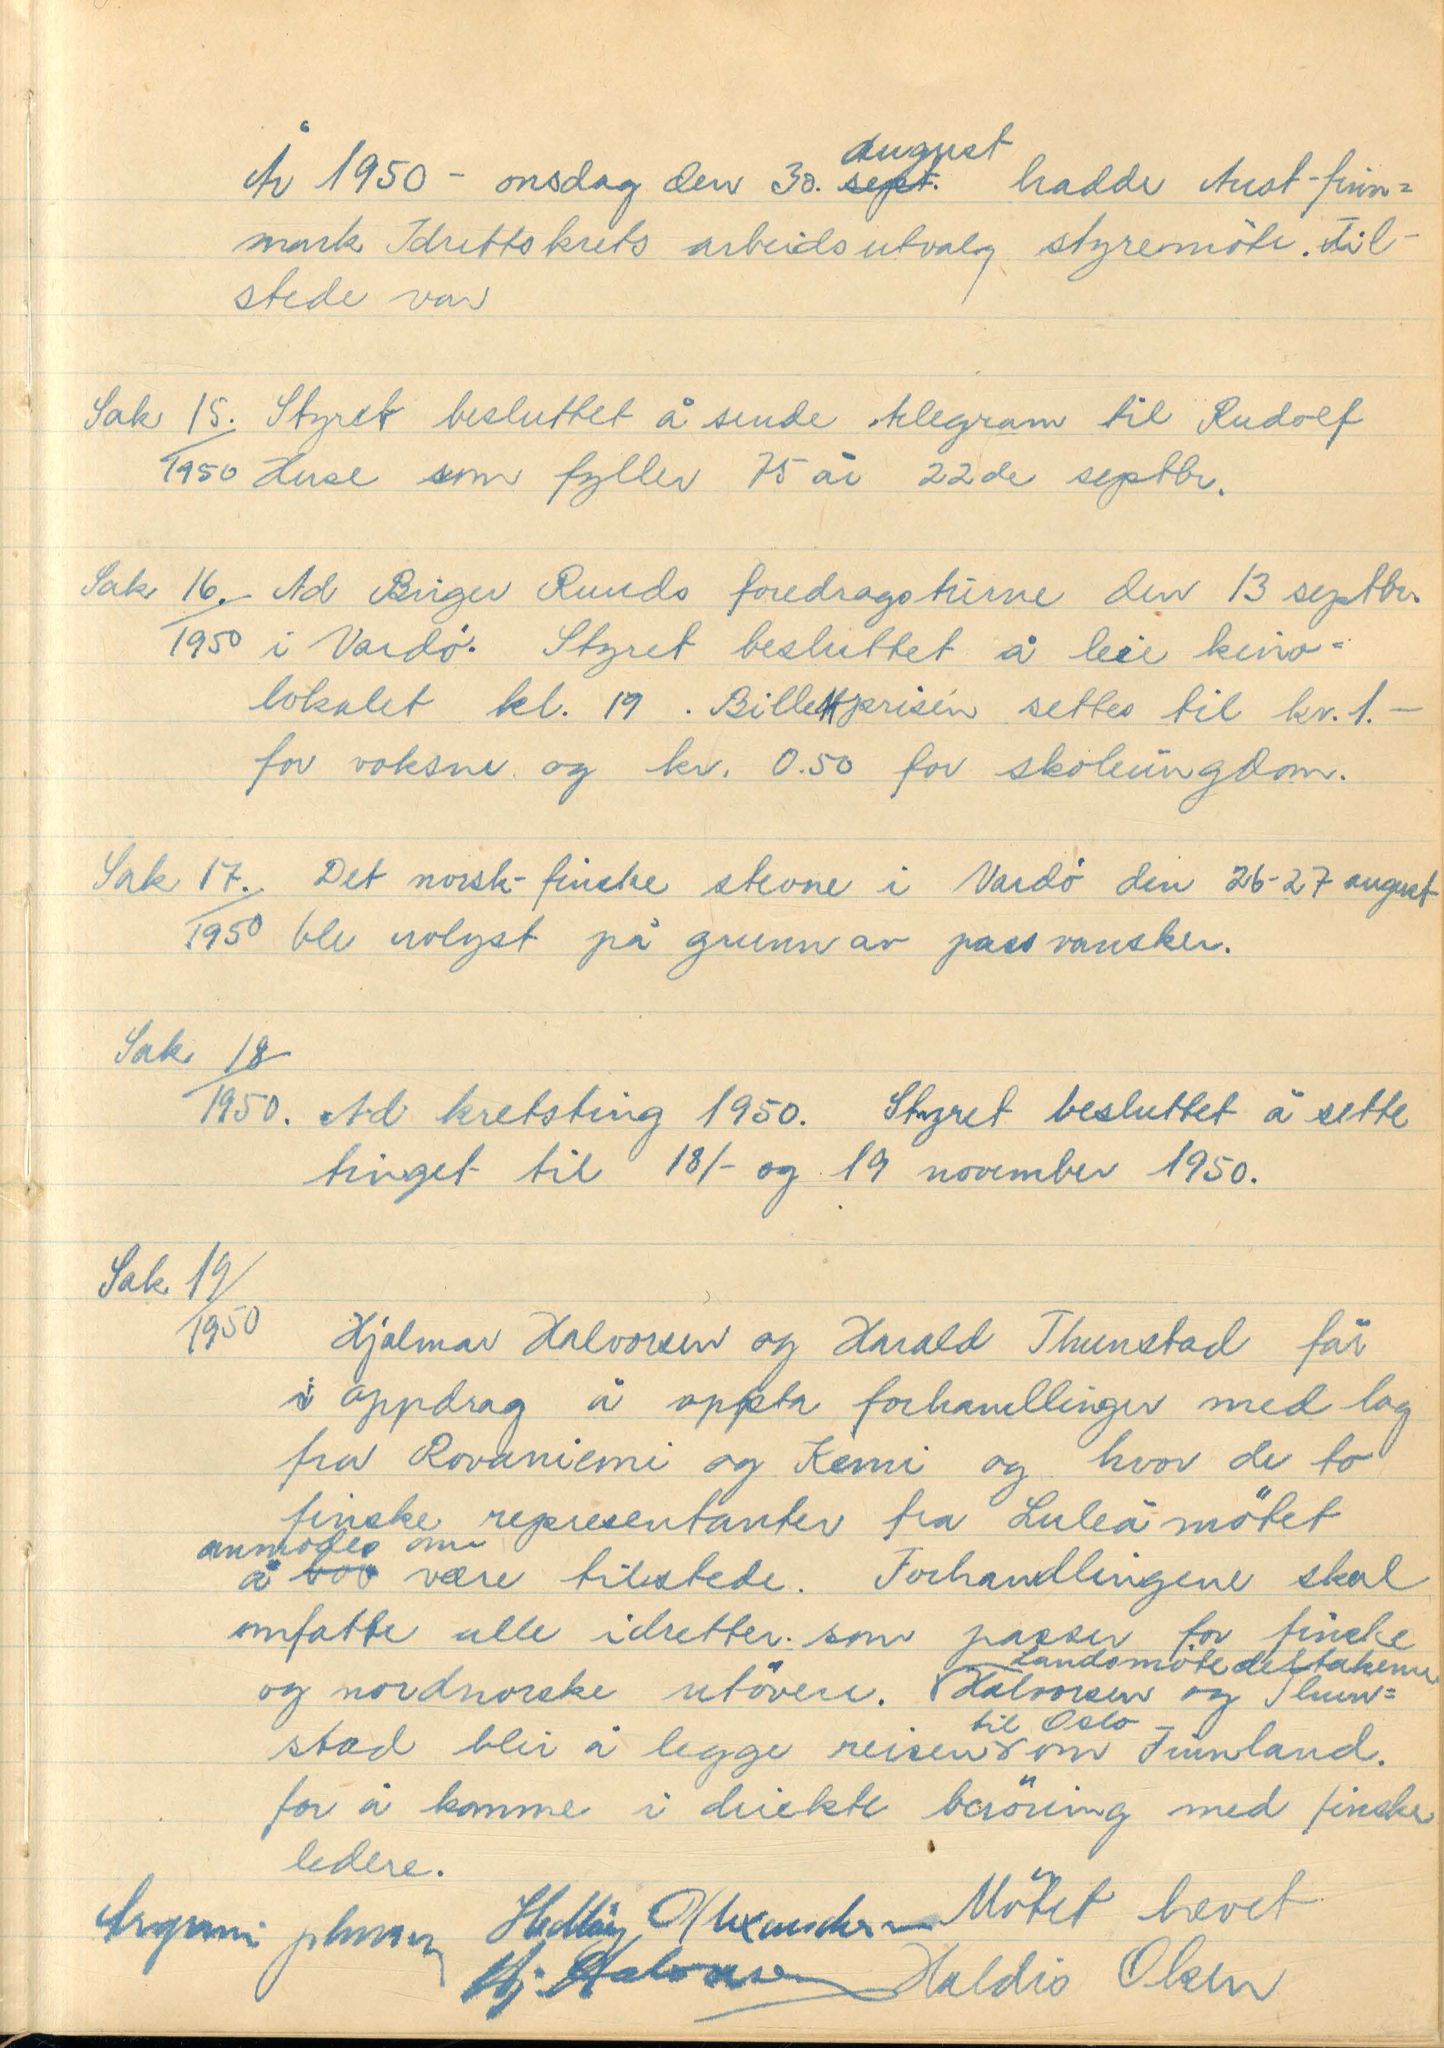 År 1950 - onsdag den 30. sept. august hadde Aust-finn=
mark Idrettskrets arbeidsutvalg styremöte. Til-
stede var
Sak 15. Styret besluttet å sende telegram til Rudolf
1950 Huse som fyller 75 år 22de septbr.
Sak 16. Ad Birger Ruuds foredragsturne den 13 septbr.
1950 i Vardö. Styret besluttet å leie kino=
lokalet kl. 19. Billettprisen settes til kr. 1.-
for voksne og kr. 0.50 for skoleungdom.
Sak 17. Det norsk-finske stevne i Vardö den 26-27 august
1950 ble avlyst på grunn av passvansker.
Sak 18
1950. Ad kretsting 1950. Styret besluttet å sette
tinget til 18/- og 19 november 1950.
Sak 19/
1950 Hjalmar Halvorsen og Harald Thunstad får
i oppdrag å oppta forhandlinger med lag
fra Rovaniemi og Kemi og hvor de to
finske representanter fra Luleåmötet
anmodes om
å være tilstede. Forhandlingene skal
omfatte alle idretter som passer for finske
Landsmötedeltakerne
og nordnorske utövere. Halvorsen og Thun=
til Oslo
stad blir å legge reisen om Finnland.
for å komme i direkte beröring med finske
ledere.
Mötet hevet
Hj. Halvorsen Haldis Olsen